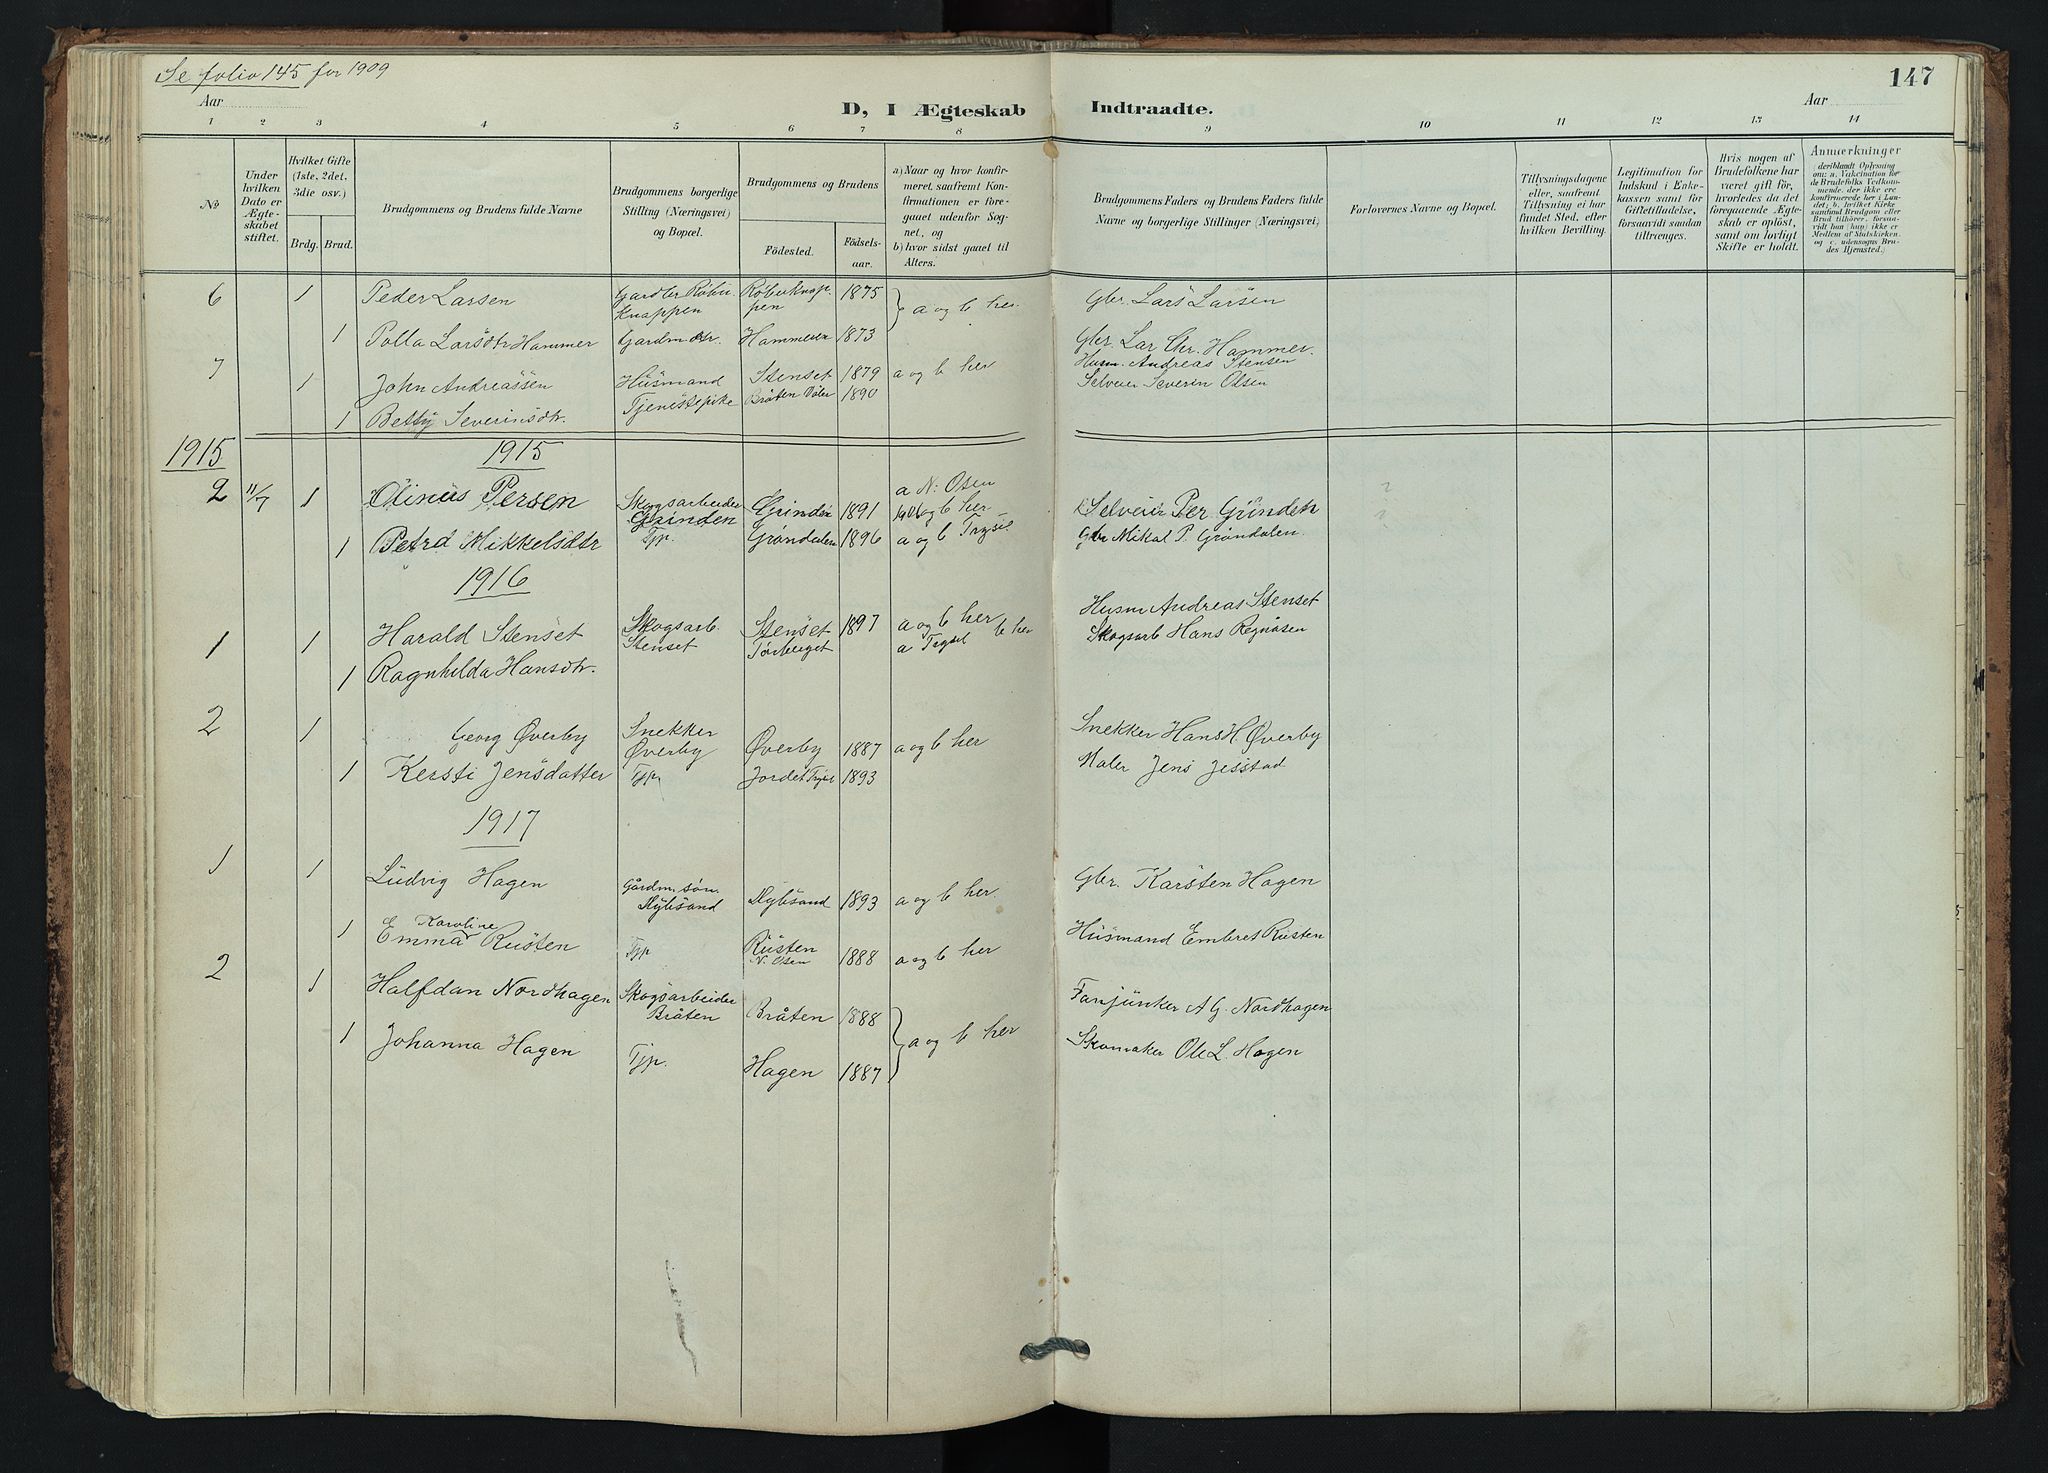 Se folio 145 for 1909
147
Aar
Aar
D, I Ægteskab Indtraadte.
1 2 3 4 5 6 7 8 9 10 11 12 13 14
No
Under hvilken Dato er Ægte-skabet stiftet.
Hvilket Gifte (1ste, 2det, 3die osv.)
Brdg. Brud.
Brudgommens og Brudens fulde Navne
Brudgommens borgerlige Stilling (Næringsvei) og Bopæl.
Brudgommens og Brudens
Fødested. Fødsels-aar.
a) Naar og hvor konfir-meret, saafremt Kon-firmationen er fore-gaaet udenfor Sog-net, og
b) hvor sidst gaaet til Alters.
Brudgommens Faders og Brudens Faders fulde Navne og borgerlige Stillinger (Næringsvei)
Forlovernes Navne og Bopæl.
Tillysningsdagene eller, saafremt Tillysning ei har fundet Sted, efter hvilken Bevilling.
Legitimation for Indskud i Enke-kassen samt for Giftetilladelse, forsaavidt saadan tiltrænges.
Hvis nogen af Brudefolkene har været gift før, hvorledes da det foregaaende Ægte-skab er opløst, samt om lovligt Skifte er holdt.
Anmerkninger
deriblandt Oplysning om: a. Vakcination for de Brudefolks Vedkom-mende, der ikke ere konfirmerede her i Lan-det; b. hvilket Kirke-samfund Brudgom eller Brud tilhører, forsaa-vidt han (hun) ikke er Medlem af Statskirken, og c. udensogns Bru-des Hjemsted.)
6 1 Peder Larsen Gardbr Røbu- Røbuknap- 1875 } a og b her. Gbr. Lars Larsen
knappen pen
1 Polla Larsdtr Hammer Gardm dtr. Hammeren 1873 Gbr. Lar Chr. Hammer.
7 1 John Andreassen Husmand Stenset 1879 a og b her Husm. Andreas Stensen
1 Betty Severinsdtr. Tjenestepike Bråten Våler 1890 Selveier Severin Olsen
1915 1915
2 11/7 1 Olinus Persen Skogsarbeider Grinden 1891 a N: Osen Selveier Per Grinden
Grinden 1906 og b her
1 Petra Mikkelsdtr Tjp. Grøndalen 1896 a og b Trysil Gbr Mikal P. Grøndalen.
1916
1 1 Harald Stenset Skogsarb. Stenset 1897 a og b her Husm Andreas Stenset
1 Ragnhilda Hansdtr. Stenset Tørberget a Trysil b her Skogsarb Hans Regnåsen
2 1 Georg Øverby Snekker Øverby 1887 a og b her Snekker Hans H Øverby
Øverby
1 Kersti Jensdatter Tjp. Jordet Trysil 1893 Maler Jens Jesstad
1917
1 1 Ludvig Hagen Gårdm. søn. Myksand 1893 a og b her. Gbr. Karsten Hagen
Myksand
Karoline
1 Emma Rusten Tjp Rusten 1888 a og b her Husmand Embret Rusten
N. Osen
2 1 Halfdan Nordhagen Skogsarbeider Bråten 1888 } a og b her Fanjunker A G. Nordhagen
Bråten
1 Johanna Hagen Tjp. Hagen 1887 Skomaker Ole L. Hagen